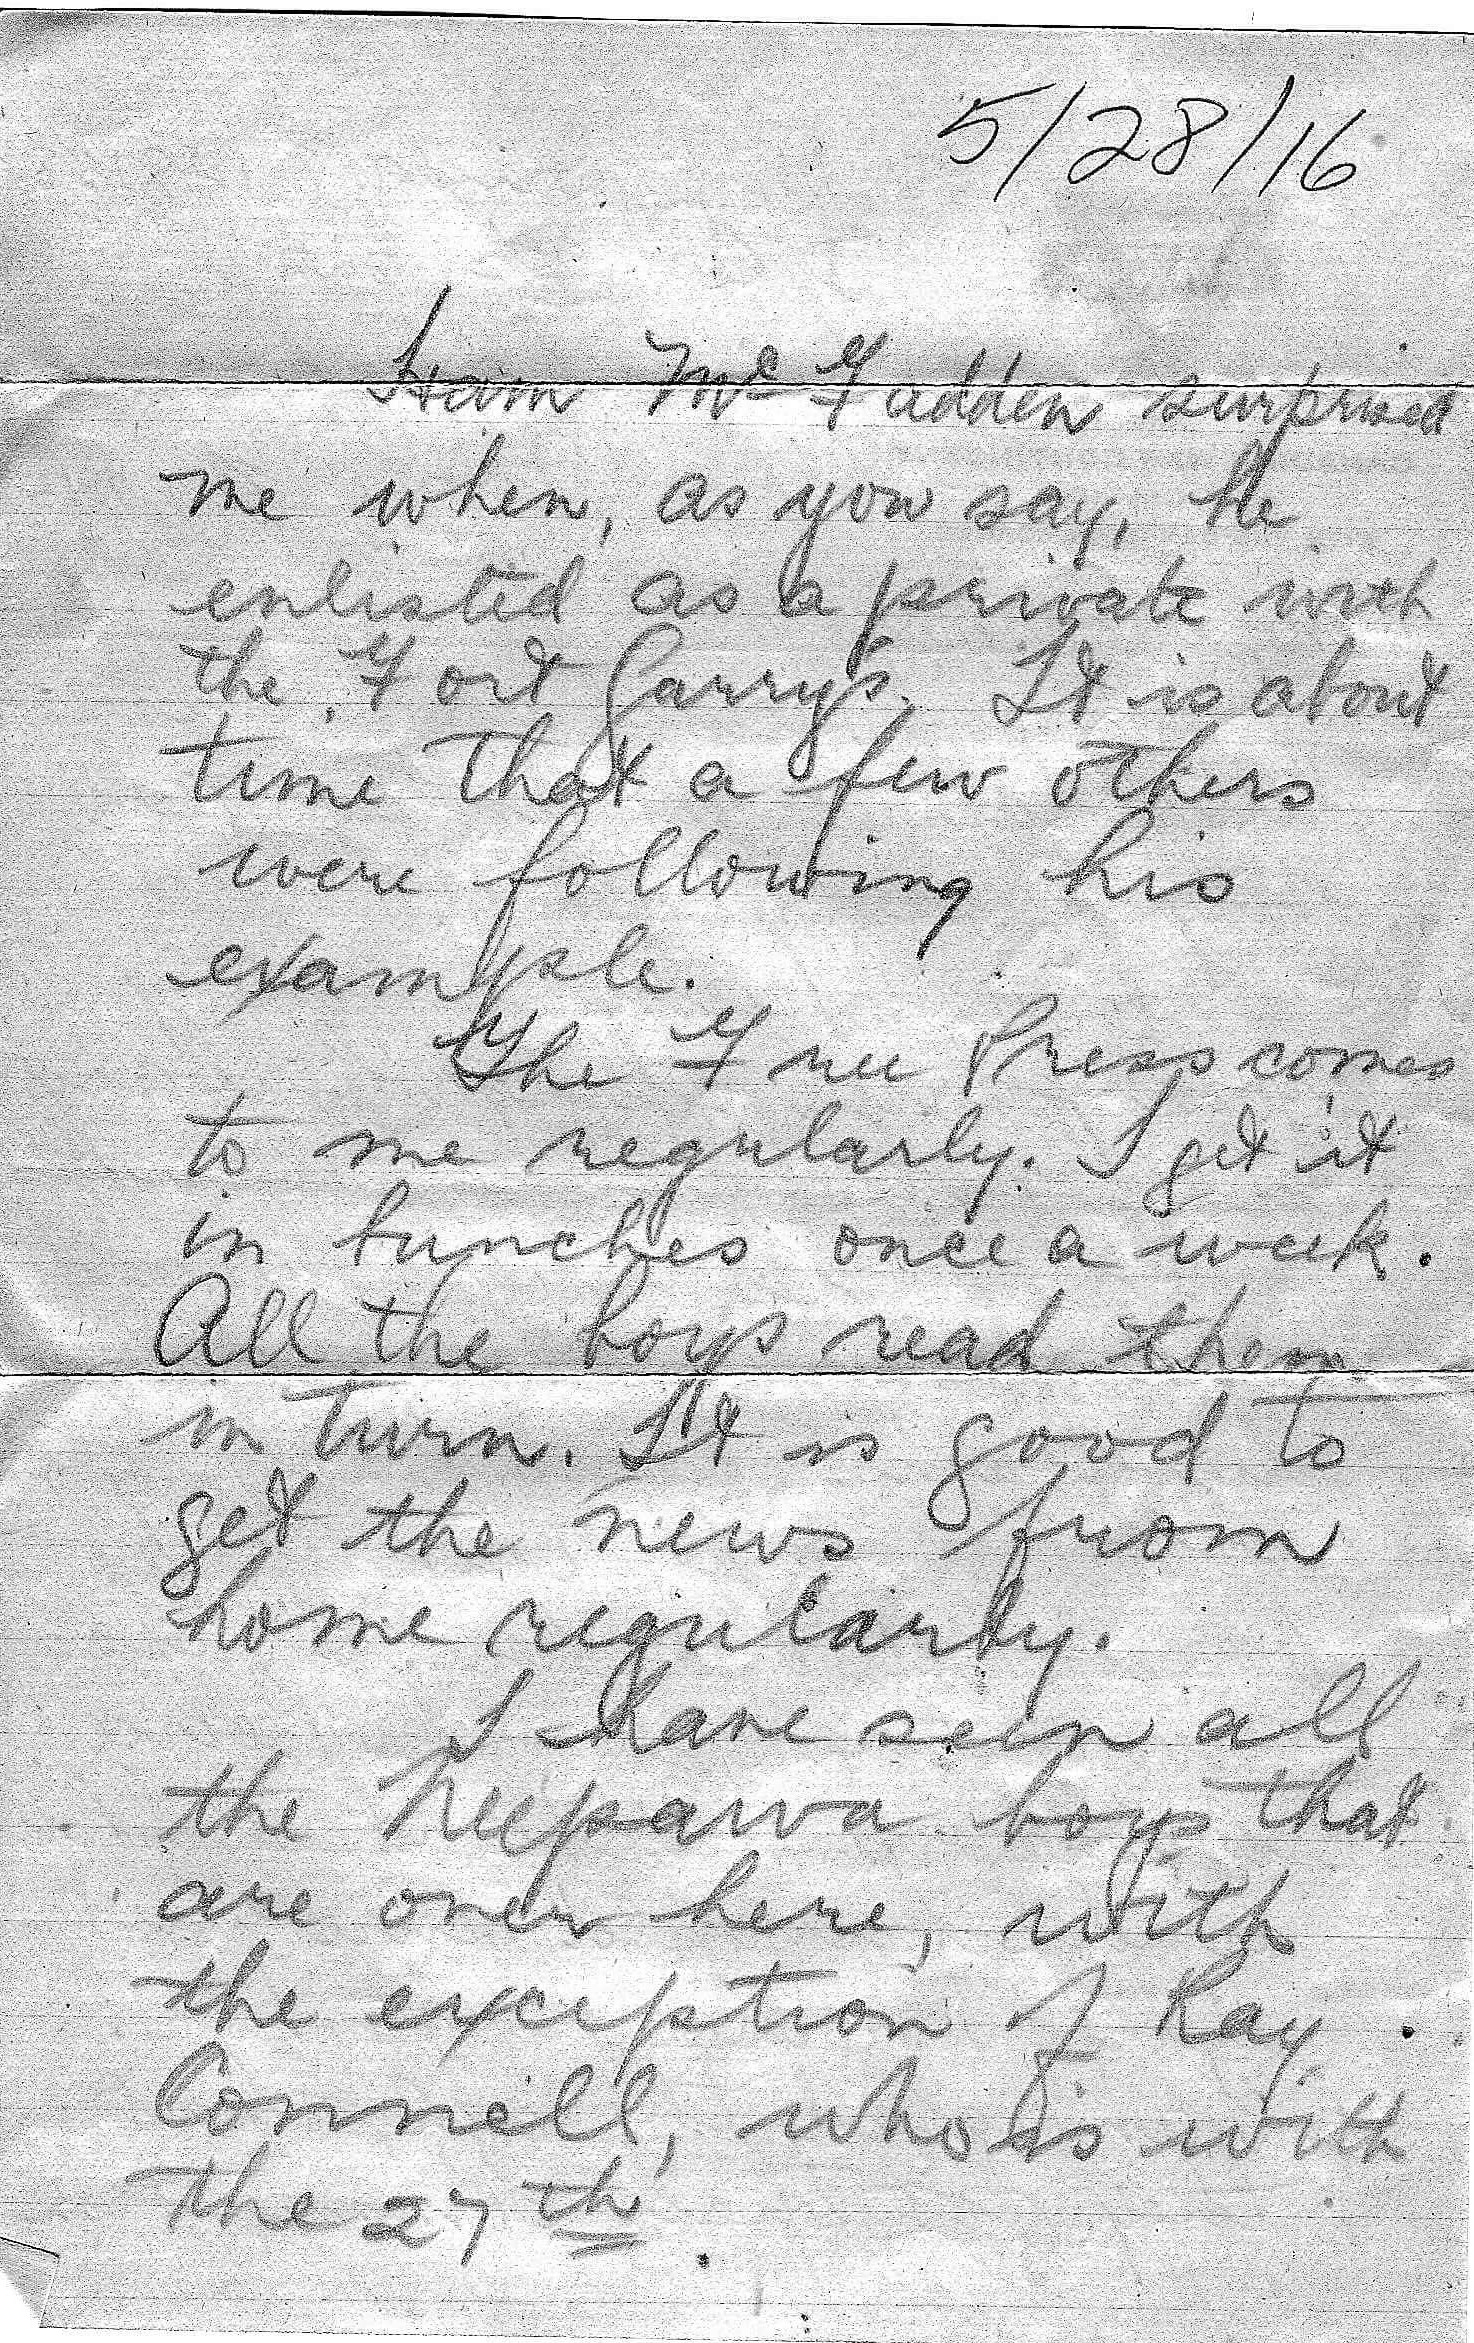 5/28/16
McFadden surprised
me when, as you say, he
enlisted as a private with
the Fort Garrys. It is about
time that a few others
were following his
example.
The Free Press comes
to me regularly. I get it
in bunches once a week.
All the boys read them
in turn. It is good to
get the news from
home regularly.
I have seen all
the Neepawa boys that
are over here, with
the exception of Ray
Connell, who is with
the 27th.